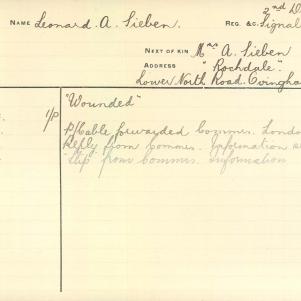 2nd D
NAME Leonard. A. Sieben. REG. &C. Signal
NEXT OF KIN Mrs A. Sieben
ADDRESS "Rochdale"
Lower North Road. Ovingha
"Wounded"
1/p P/Cable forwarded Commrs. Londo
Reply from Commrs. Information s
Slip from Commrs. Information